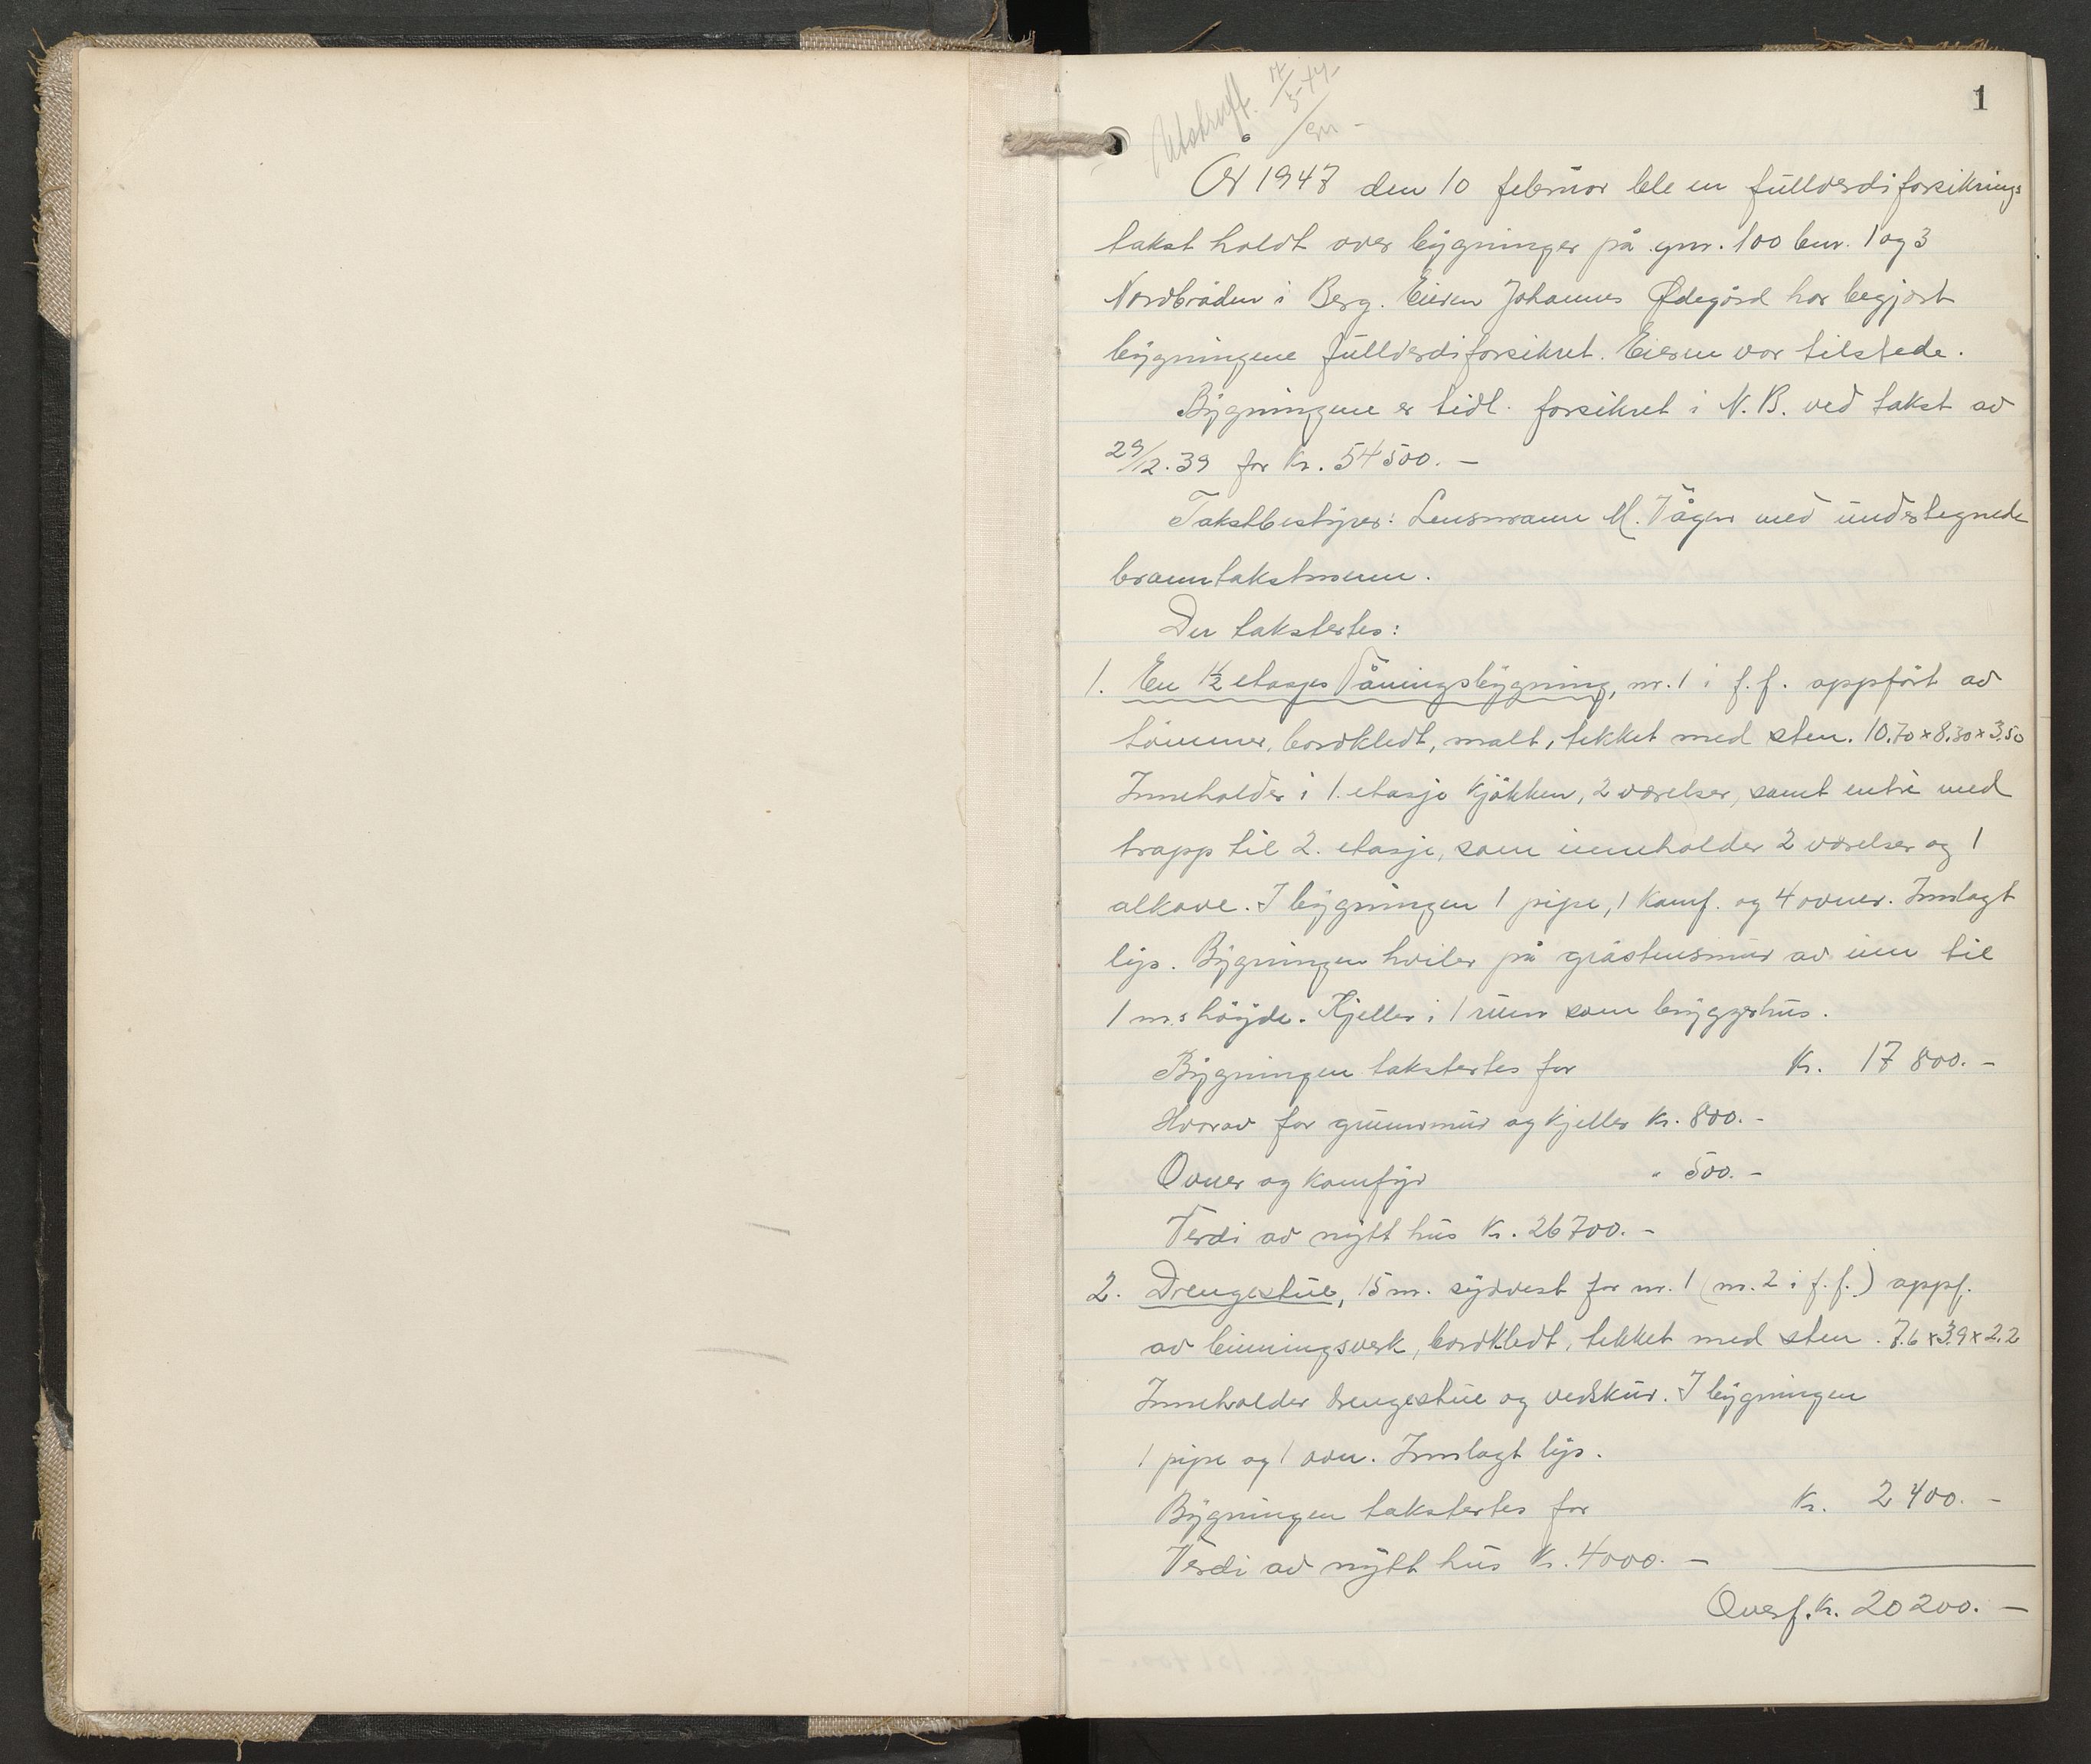 1
Utskrift. 17/3-47
År 1947 den 10 februar ble en fullverdiforsikrings
takst holdt over bygninger på gnr. 100 bnr. 1 og 3
Nordbråden i Berg. Eieren Johannes Ødegård har begjært
bygningene fullverdiforsikret. Eieren var tilstede.
Bygningene er tidl. forsikret i N.B. ved takst av
29/12.39 for kr. 54500.-
Takstbestyrer: Lensmann M. Vågen med undertegnede
branntakstmenn.
Der takstertes:
1. En 1½ etasjes Våningsbygning, nr. 1 i f.f. oppført av
tømmer, bordkledt, malt, tekket med sten. 10.70 x 8.30 x 3.50
Inneholder i 1. etasje kjøkken, 2 værelser, samt entré med
trapp til 2. etasje, som inneholder 2 værelser og 1
alkove. I bygningen 1 pipe, 1 komf. og 4 ovner. Innlagt
lys. Bygningen hviler på gråstensmur av inn til
1 m.s høyde. Kjeller i 1 rum som bryggerhus.
Bygningen takstertes for kr. 17 800.-
Hvorav for grunnmur og kjeller kr. 800.-
Ovner og komfyr " 500.-
Verdi av nytt hus kr. 26700.-
2. Drengestue, 15 m. sydvest for nr. 1 (nr. 2 i f.f.) oppf.
av binningsverk, bordkledt, tekket med sten. 7.6 x 3.9 x 2.2
Inneholder drengestue og vedskur. I bygningen
1 pipe og 1 ovn. Innlagt lys.
Bygningen takstertes for kr. 2 400.-
Verdi av nytt hus kr. 4000.-
Overf. kr. 20 200.-